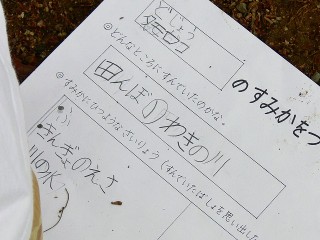 どじょう
のすみかをつ
◎どんなところにすんでいたのかな。
田んぼのわきの川
◎すみかにひつようなざいりょう（すんでいたばしょを思い出した
きんぎょのえさ
川の水